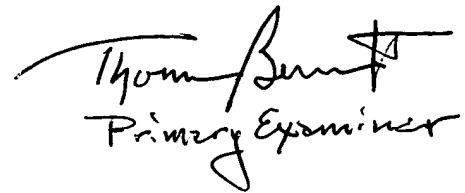 Thomas Bennett
Primary Examiner